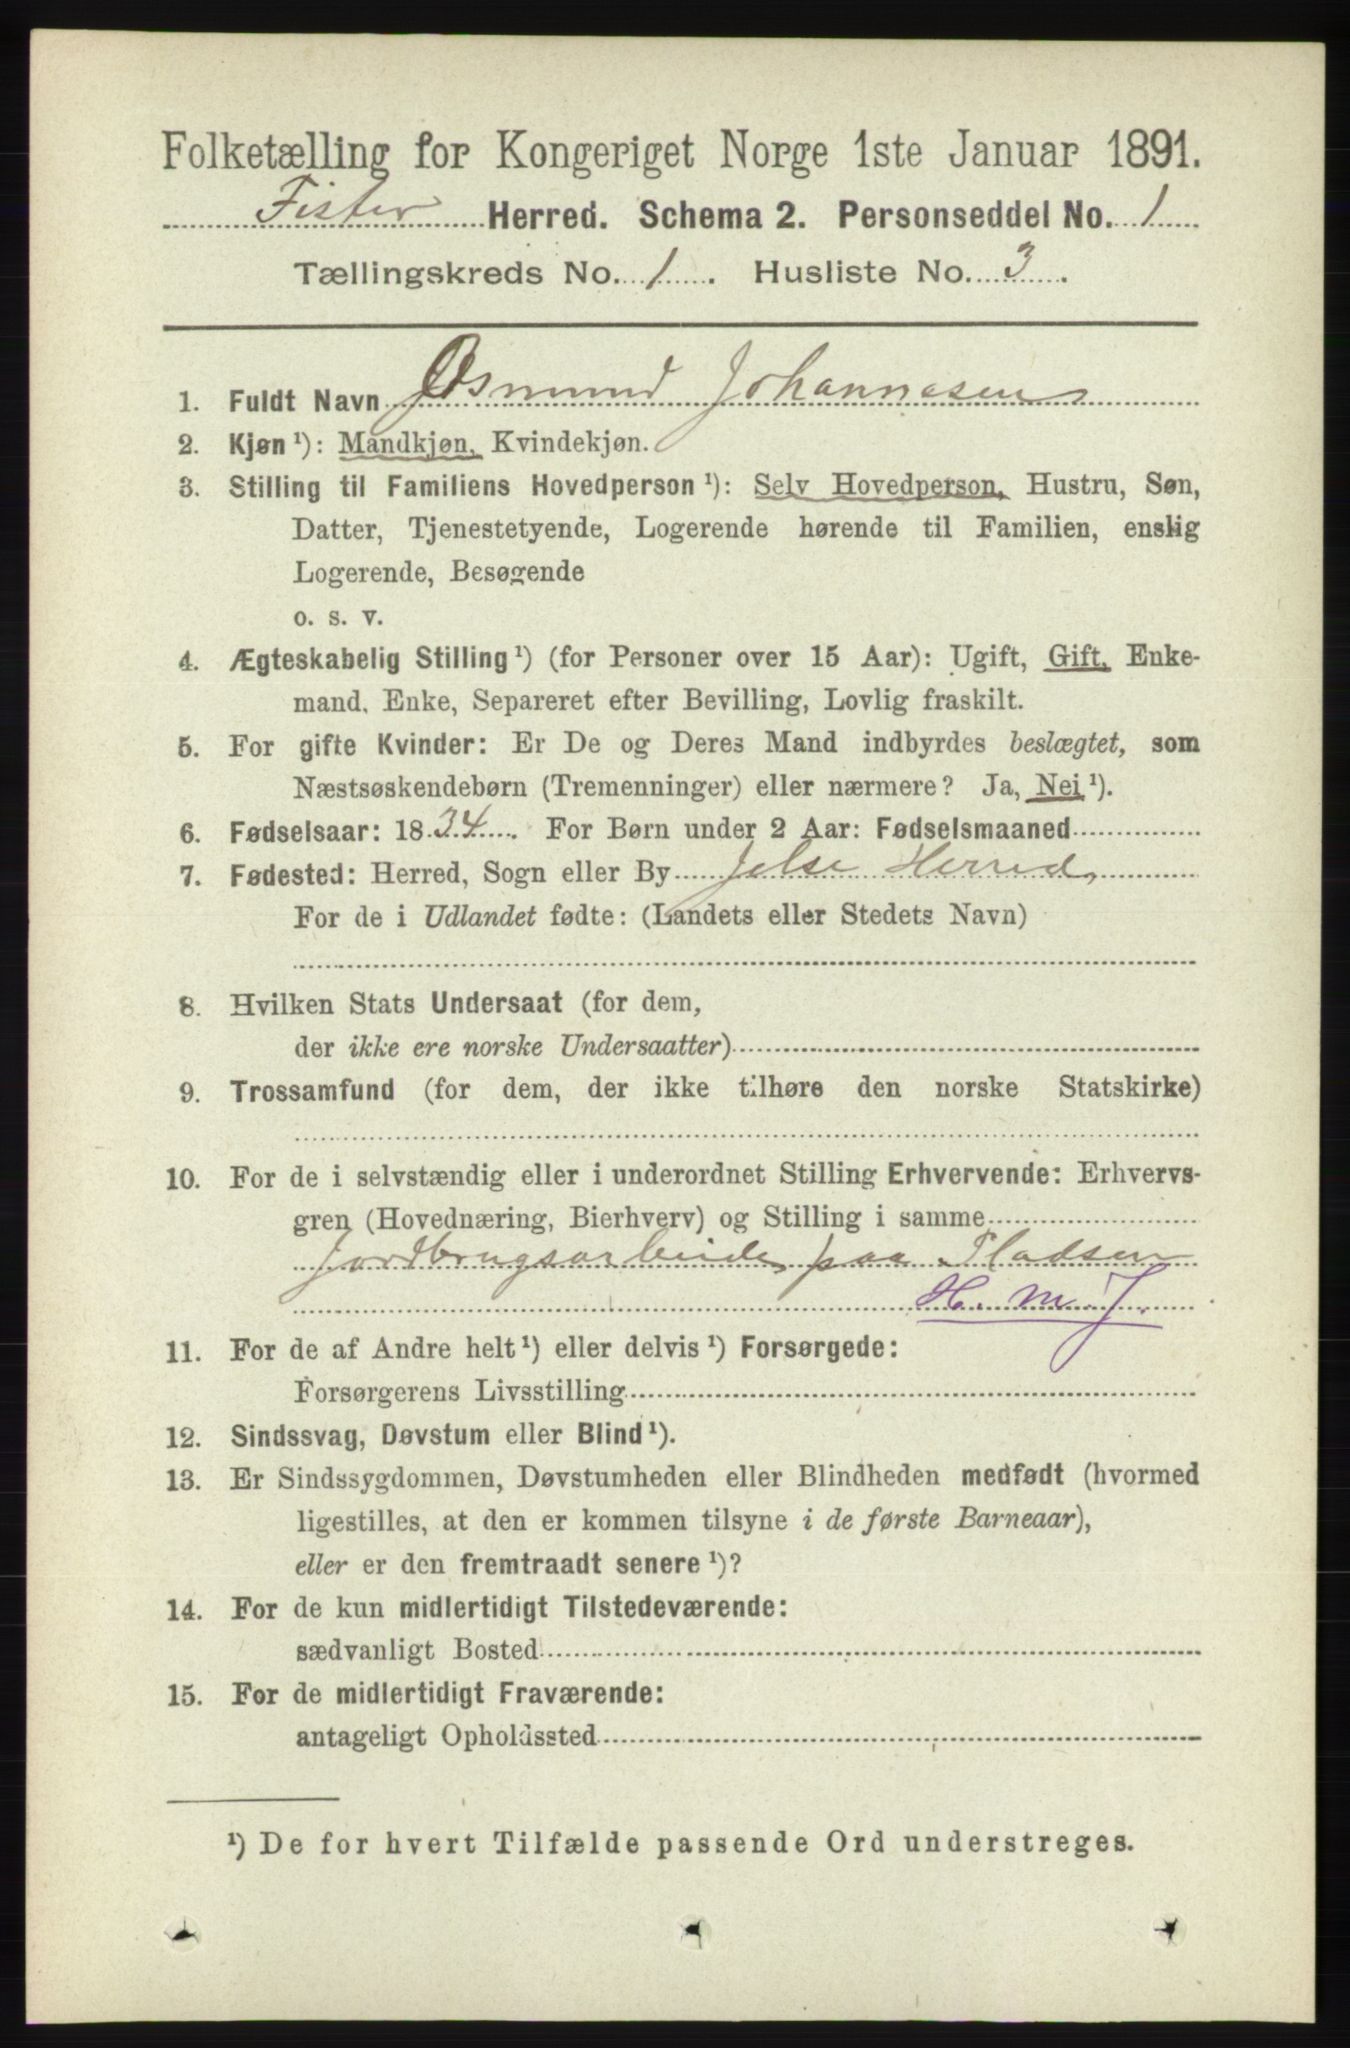 Folketælling for Kongeriget Norge 1ste Januar 1891.
Fister Herred. Schema 2. Personseddel No. 1
Tællingskreds No. 1. Husliste No. 3.
1. Fuldt Navn Osmund Johannesen
2. Kjøn¹): Mandkjøn, Kvindekjøn.
3. Stilling til Familiens Hovedperson¹): Selv Hovedperson, Hustru, Søn,
Datter, Tjenestetyende, Logerende hørende til Familien, enslig
Logerende, Besøgende
o. s. v.
4. Ægteskabelig Stilling¹) (for Personer over 15 Aar): Ugift, Gift, Enke-
mand, Enke, Separeret efter Bevilling, Lovlig fraskilt.
5. For gifte Kvinder: Er De og Deres Mand indbyrdes beslægtet, som
Næstsøskendebørn (Tremenninger) eller nærmere? Ja, Nei¹).
6. Fødselsaar: 1834. For Børn under 2 Aar: Fødselsmaaned
7. Fødested: Herred, Sogn eller By Jelse Herred
For de i Udlandet fødte: (Landets eller Stedets Navn)
8. Hvilken Stats Undersaat (for dem,
der ikke ere norske Undersaatter)
9. Trossamfund (for dem, der ikke tilhøre den norske Statskirke)
10. For de i selvstændig eller i underordnet Stilling Erhvervende: Erhvervs-
gren (Hovednæring, Bierhverv) og Stilling i samme
Jordbrugsarbeide paa Pladsen
H. m. J.
11. For de af Andre helt¹) eller delvis¹) Forsørgede:
Forsørgerens Livsstilling
12. Sindssvag, Døvstum eller Blind¹).
13. Er Sindssygdommen, Døvstumheden eller Blindheden medfødt (hvormed
ligestilles, at den er kommen tilsyne i de første Barneaar),
eller er den fremtraadt senere¹)?
14. For de kun midlertidigt Tilstedeværende:
sædvanligt Bosted
15. For de midlertidigt Fraværende:
antageligt Opholdssted
¹) De for hvert Tilfælde passende Ord understreges.